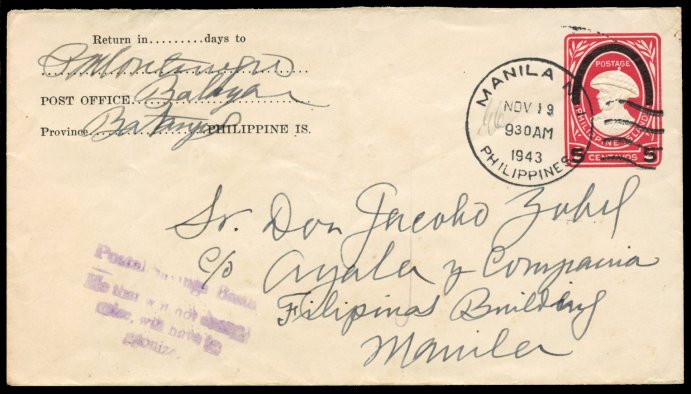 Return in.........days to
Montenegro
POST OFFICE Balayan
Province Batangas PHILIPPINE IS.
MANILA
NOV 19
930AM
1943
PHILIPPINES
POSTAGE
PHILIPPINE ISLANDS
5 CENTAVOS 5
Sr. Don Jacobo Zobel
c/o Ayala y Compania
Filipinas Building
Manila
Postal Savings Bank
He that will not
will have to